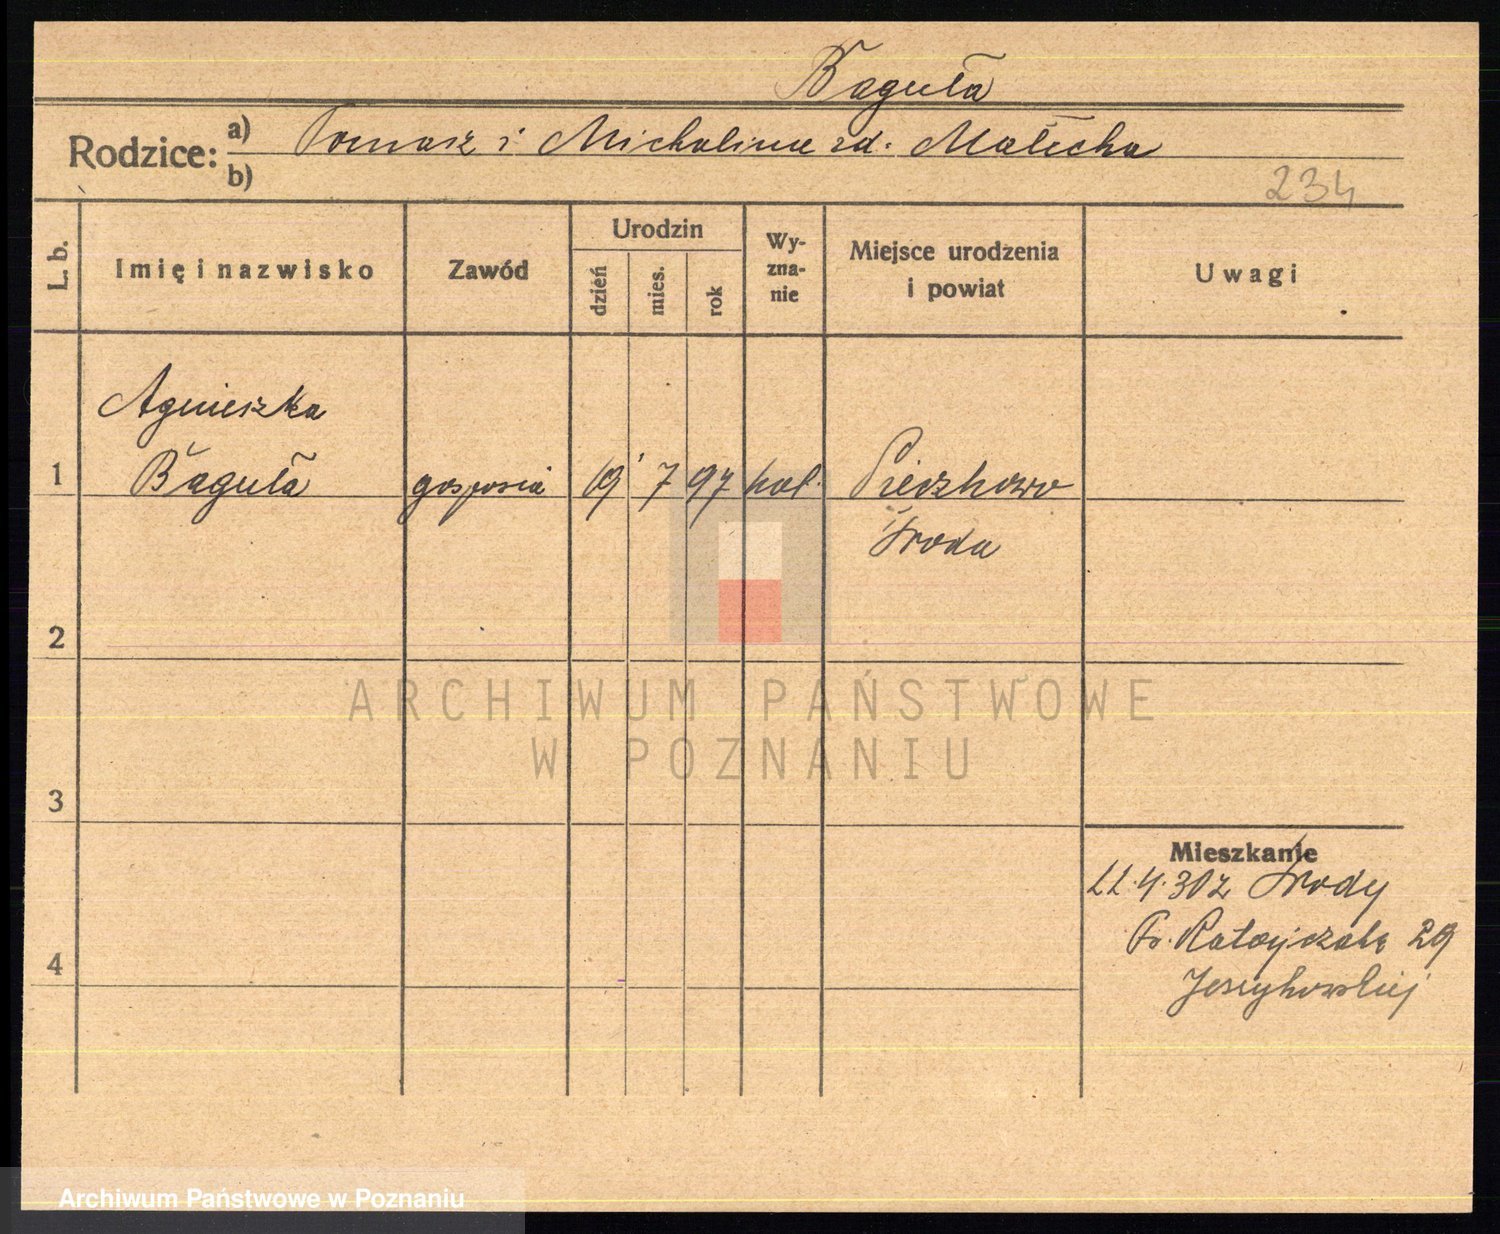 Baguła
Rodzice: a) Tomasz i Michalina zd. Małecka
b)
234
L. b.
Imię i nazwisko
Zawód
Urodzin
dzień
mies.
rok
Wy-
zna-
nie
Miejsce urodzenia
i powiat
Uwagi
Agnieszka
1 Baguła gosposia 19 7 97 kat. Pieczkowo
Środa
2
ARCHIWUM PAŃSTWOWE
W POZNANIU
3
Mieszkanie
22.4.30 z Środy
Fr. Ratajczaka 29
4
Archiwum Państwowe w Poznaniu